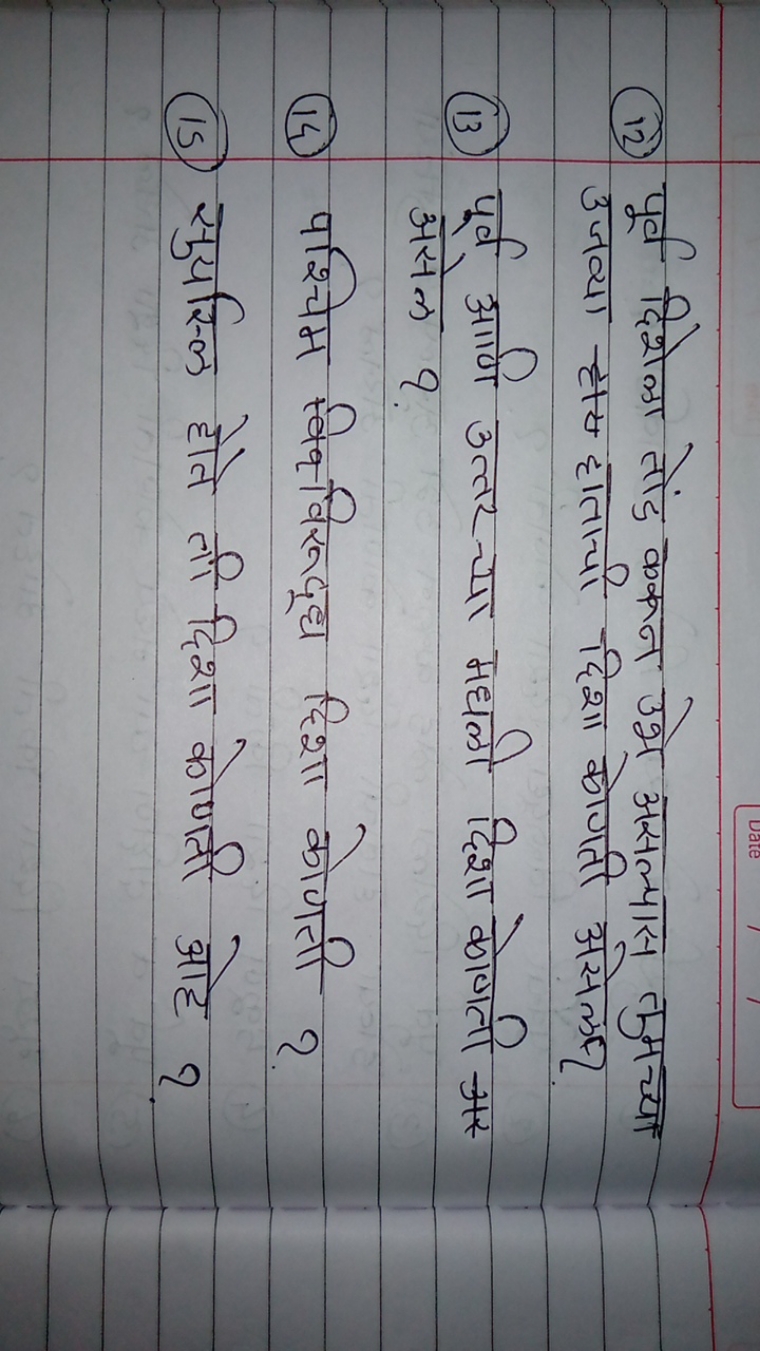 Date / /
12 पूर्व दिशेला तोंड करून उभे असल्यास तुमच्या
उजव्या हाताची दिशा कोणती असेल?
13 पूर्व आणि उत्तरच्या मधली दिशा कोणती
असेल ?
14 पश्चिम विरूद्ध दिशा कोणती ?
15 सुर्यास्त होते ती दिशा कोणती आहे ?